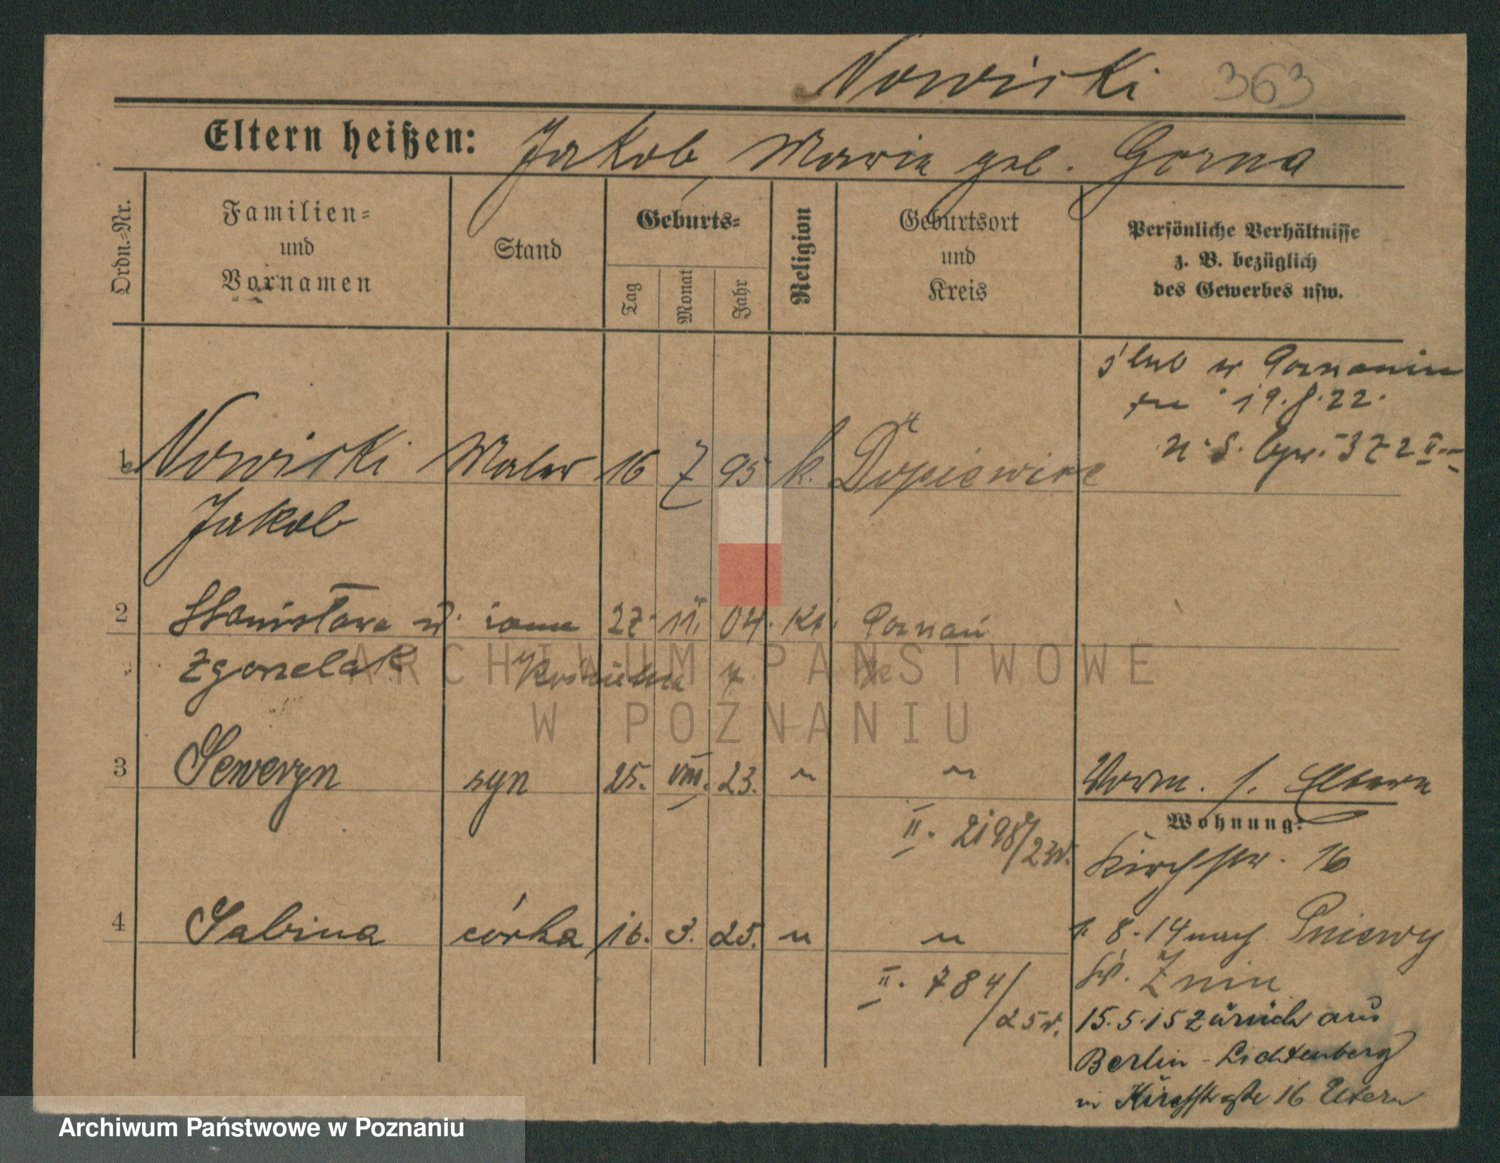 Nowicki 363
Eltern heißen: Jakob, Marie geb. Gorna
Ordn.=Nr.
Familien= und Vornamen
Stand
Geburts=
Tag
Monat
Jahr
Religion
Geburtsort und Kreis
Persönliche Verhältnisse
z. B. bezüglich
des Gewerbes usw.
ślub w Poznaniu
19.8.22.
1 Nowicki Maler 16 7 95 k. Dopiewiec
Jakob
2 Stanisława żona 27. 11. 04. kt. Poznań
Zgorzelak
3 Seweryn syn 25. VIII. 23. " "
II. 2198/23r.
4 Sabina córka 16. 3. 25. " "
II. 784/25r.
Vorm. s. Eltern
Wohnung:
Kirchstr. 16
1. 8. 14 nach Pniewy
Kr. Znin
15.5.15 zurück aus
Berlin-Lichtenberg
n Kirchstraße 16 Eltern
ARCHIWUM PAŃSTWOWE
W POZNANIU
Archiwum Państwowe w Poznaniu